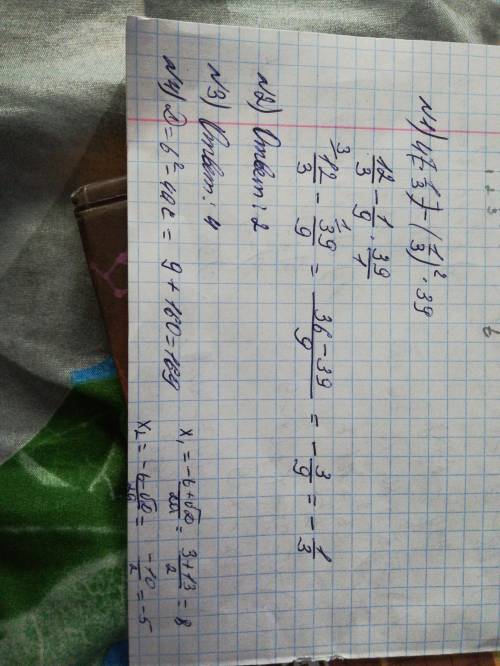 №1) 4(- 1/3) - (1/3)² · 39
12/3 - 1/9 · 39/1
12/3 - 39/9 = (36 - 39)/9 = - 3/9 = - 1/3
№2) Ответ: 2
№3) Ответ: 4
№4) D = b² - 4ac = 9 + 160 = 169
x₁ = (-b + √D)/2a = (3 + 13)/2 = 8
x₂ = (-b - √D)/2a = -10/2 = -5